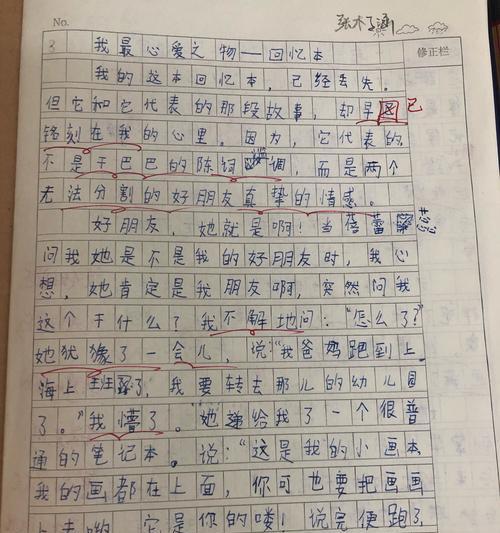 No.
张木子涵
修正栏
3 我最心爱之物——回忆本
我的这本回忆本，已经丢失。
但它和它代表的那段故事，却早已
铭刻在我的心里。因为，它代表的
不是干巴巴的陈词滥调，而是两个
无法分割的好朋友真挚的情感。
好朋友，她就是啊！当蓓蕾
问我她是不是我的好朋友时，我心
想，她肯定是我朋友啊，突然问我
这个干什么？我不解地问：“怎么了？”
她犹豫了一会儿，说：“我爸妈跑到上
海上班了，我要转去那儿的幼儿园
了。”我懵了。她递给我了一个很普
通的笔记本。说：“这是我的小画本
我的画都在上面，你可也要把画画
上去哟，它是你的喽！说完便跑了